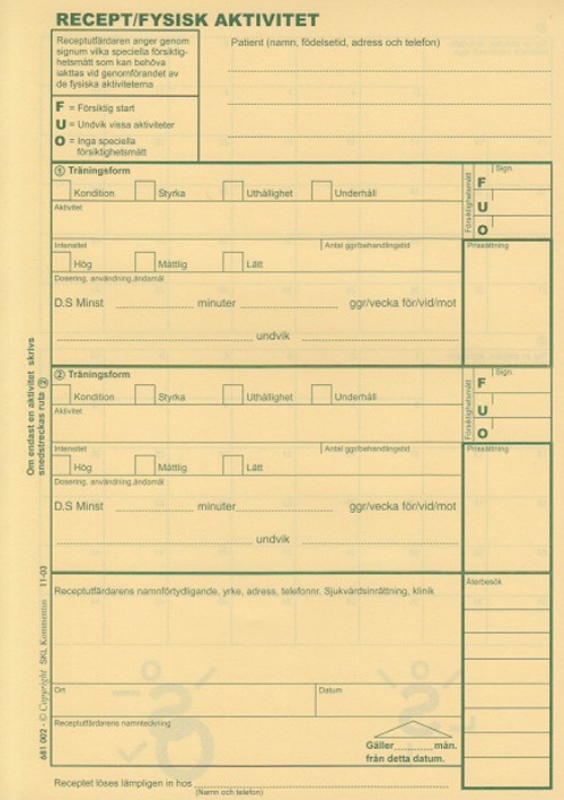 RECEPT/FYSISK AKTIVITET
Receptutfärdaren anger genom
signum vilka speciella försiktig-
hetsmått som kan behöva
iakttas vid genomförandet av
de fysiska aktiviteterna
F = Försiktig start
U = Undvik vissa aktiviteter
O = Inga speciella
försiktighetsmått
Patient (namn, födelsetid, adress och telefon)
1 Träningsform
Kondition Styrka Uthållighet Underhåll
Aktivitet
Försiktighetsmått
Sign.
F
U
O
Intensitet Antal ggr/behandlingstid Prissättning
Hög Måttlig Lätt
Dosering, användning,ändamål
D.S Minst minuter ggr/vecka för/vid/mot
undvik
2 Träningsform
Kondition Styrka Uthållighet Underhåll
Aktivitet
Försiktighetsmått
Sign.
F
U
O
Intensitet Antal ggr/behandlingstid Prissättning
Hög Måttlig Lätt
Dosering, användning,ändamål
D.S Minst minuter ggr/vecka för/vid/mot
undvik
Receptutfärdarens namnförtydligande, yrke, adress, telefonnr. Sjukvårdsinrättning, klinik
Återbesök
Ort Datum
Receptutfärdarens namnteckning
Gäller mån.
från detta datum.
Receptet löses lämpligen in hos
(Namn och telefon)
Om endast en aktivitet skrivs
snedstreckas ruta 2
681 002 - © Copyright SKL Kommentus 11-03